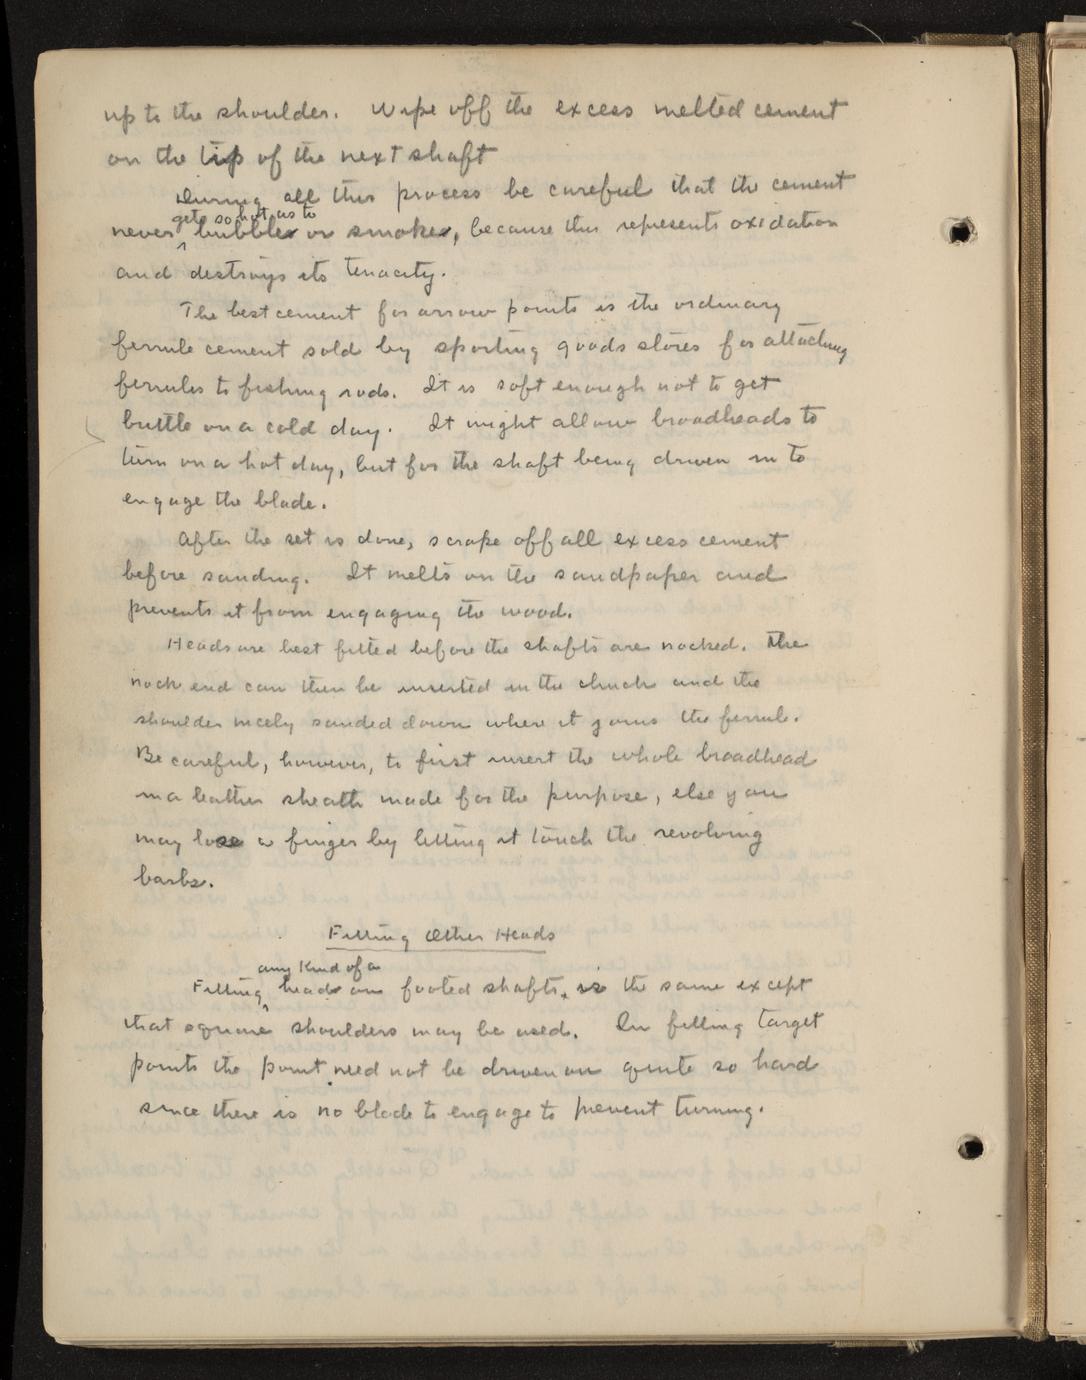 up to the shoulder. Wipe off the excess melted cement
on the tip of the next shaft
During all this process be careful that the cement
gets so hot as to
never bubbles or smokes, because this represents oxidation
and destroys its tenacity.
The best cement for arrow points is the ordinary
ferrule cement sold by sporting goods stores for attaching
ferrules to fishing rods. It is soft enough not to get
brittle on a cold day. It might allow broadheads to
turn on a hot day, but for the shaft being driven in to
engage the blade.
After the set is done, scrape off all excess cement
before sanding. It melts on the sandpaper and
prevents it from engaging the wood.
Heads are best fitted before the shafts are nocked. The
nock end can then be inserted in the chuck and the
shoulder nicely sanded down where it joins the ferrule.
Be careful, however, to first insert the whole broadhead
in a leather sheath made for the purpose, else you
may lose a finger by letting it touch the revolving
barbs.
Fitting Other Heads
any kind of a
Fitting head on footed shafts, is the same except
that square shoulders may be used. In fitting target
points the point need not be driven on quite so hard
since there is no blade to engage to prevent turning.